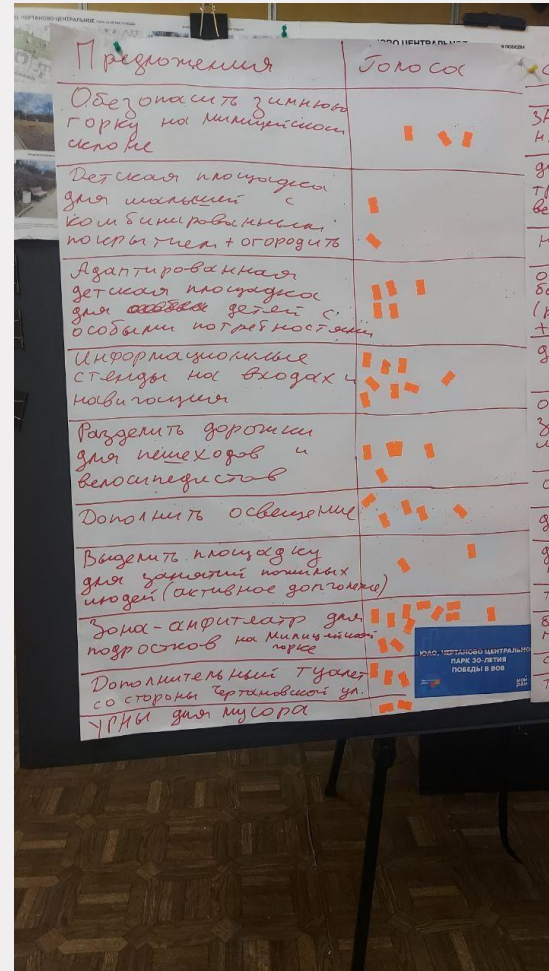 ЧЕРТАНОВО ЦЕНТРАЛЬНОЕ
Предложения
Голоса
Обезопасить зимнюю
горку на милицейском
склоне
Детская площадка
для малышей с
комбинированным
покрытием + огородить
Адаптированная
детская площадка
для детей с
особыми потребностями
Информационные
стенды на входах и
навигация
Разделить дорожки
для пешеходов и
велосипедистов
Дополнить освещение
Выделить площадку
для занятий пожилых
людей (активное долголетие)
Зона-амфитеатр для
подростков на милицейской
горке
Дополнительный туалет
со стороны Чертановской ул.
Урны для мусора
ЮАО, ЧЕРТАНОВО ЦЕНТРАЛЬНО
ПАРК 30-ЛЕТИЯ
ПОБЕДЫ В ВОВ
мой
район